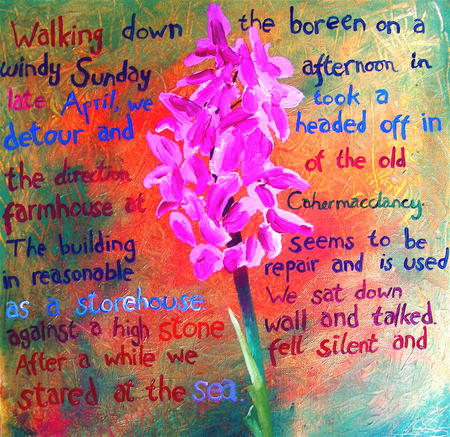 Walking down the boreen on a
windy Sunday afternoon in
late April, we took a
detour and headed off in
the direction of the old
farmhouse at Cahermacclancy.
The building seems to be
in reasonable repair and is used
as a storehouse. We sat down
against a high stone wall and talked.
After a while we fell silent and
stared at the sea.